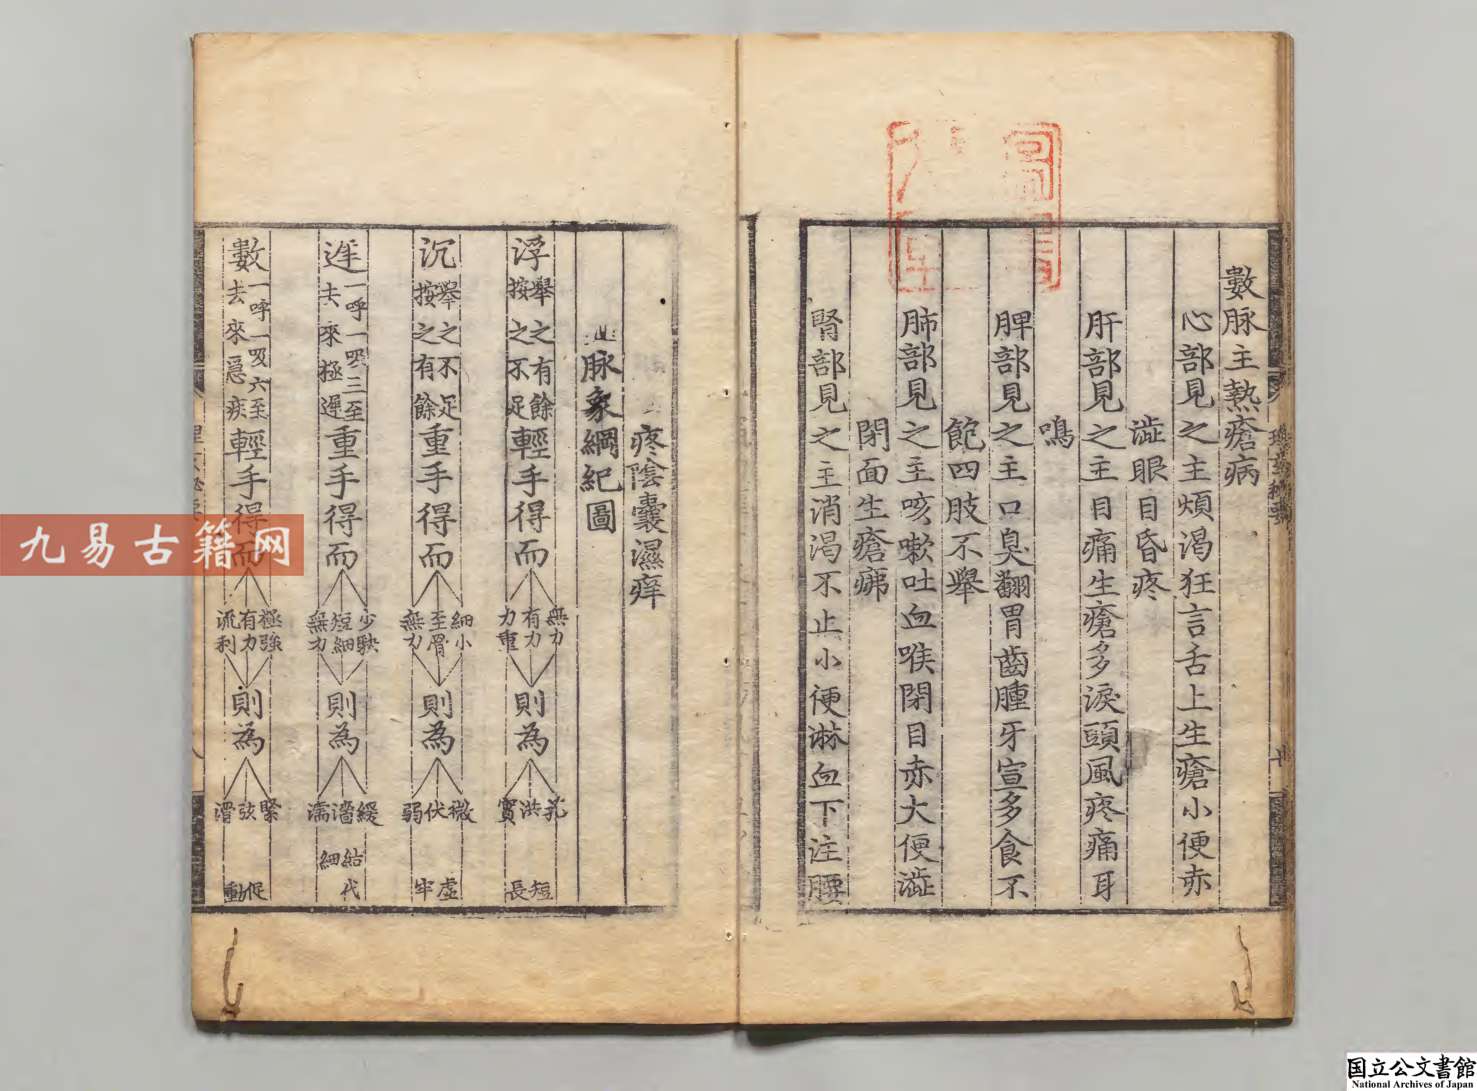 數脉主熱瘡病
心部見之主煩渴狂言舌上生瘡小便赤
澁眼目昏疼
肝部見之主目痛生瘡多淚頭風疼痛耳
鳴
脾部見之主口臭翻胃齒腫牙宣多食不
飽四肢不舉
肺部見之主咳嗽吐血喉閉目赤大便澁
閉面生瘡痱
腎部見之主消渴不止小便淋血下注腰
疼陰囊濕痒
脉象綱紀圖
浮
舉之有餘
按之不足
輕手得而
無力
有力
力重
則為
芤
洪
實
短
長
沉
舉之不足
按之有餘
重手得而
細小
至骨
無力
則為
微
伏
弱
虛
牢
遲
一呼一吸三至
去來極遲
重手得而
少駃
短細
無力
則為
緩
濇
濡
結
細
代
數
一呼一吸六至
去來急疾
輕手得而
極強
有力
流利
則為
緊
弦
滑
促
動
九易古籍网
国立公文書館
National Archives of Japan